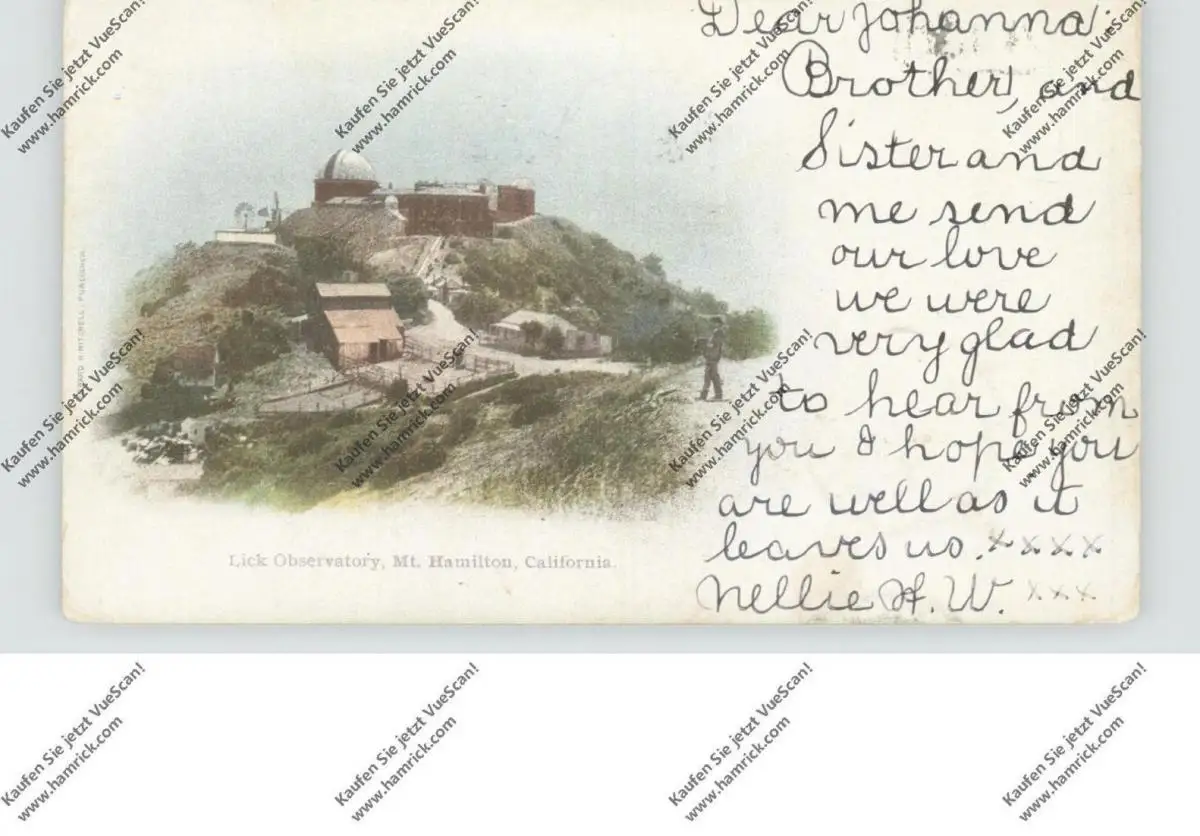 Dear Johanna:
Brother, and
Sister and
me send
our love
we were
very glad
to hear from
you I hope you
are well as it
leaves us. x x x x
Nellie H. W. x x x
Lick Observatory, Mt. Hamilton, California.
MITCHELL, PUBLISHER.
Kaufen Sie jetzt VueScan!
www.hamrick.com
Kaufen Sie jetzt VueScan!
www.hamrick.com
Kaufen Sie jetzt VueScan!
www.hamrick.com
Kaufen Sie jetzt VueScan!
www.hamrick.com
Kaufen Sie jetzt VueScan!
www.hamrick.com
Kaufen Sie jetzt VueScan!
www.hamrick.com
Kaufen Sie jetzt VueScan!
www.hamrick.com
Kaufen Sie jetzt VueScan!
www.hamrick.com
Kaufen Sie jetzt VueScan!
www.hamrick.com
Kaufen Sie jetzt VueScan!
www.hamrick.com
Kaufen Sie jetzt VueScan!
www.hamrick.com
Kaufen Sie jetzt VueScan!
www.hamrick.com